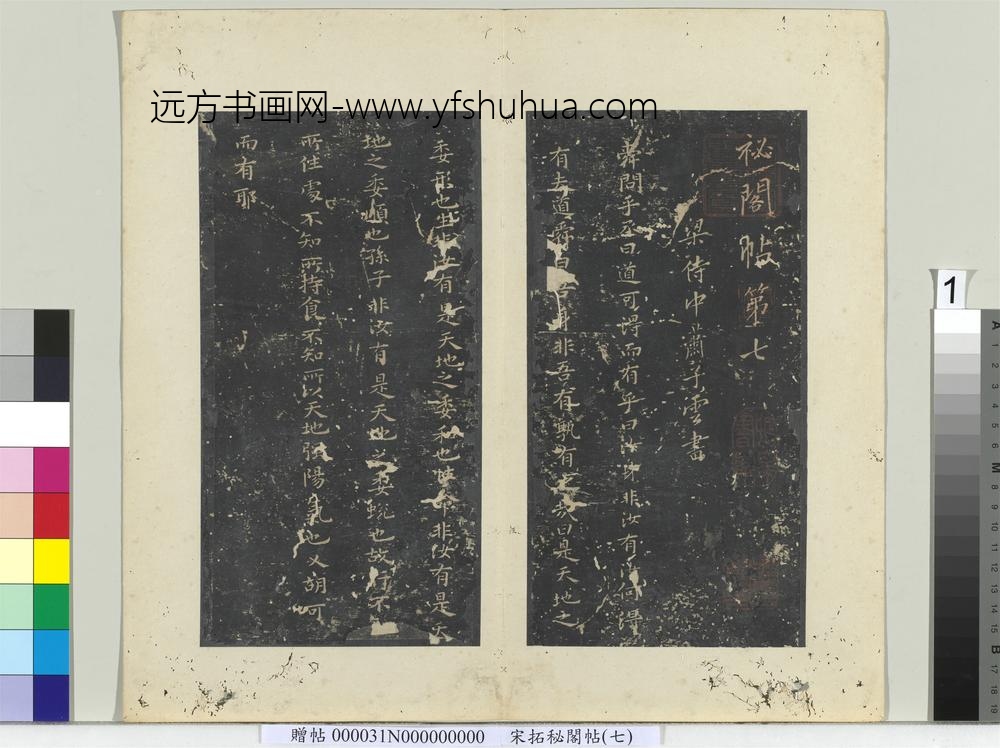 远方书画网-www.yfshuhua.com
祕閣帖第七
梁侍中蕭子雲書
舜問乎丞曰道可得而有乎曰汝身非汝有汝何得
有夫道舜曰吾身非吾有孰有之哉曰是天地之
委形也生非汝有是天地之委和也性命非汝有是天
地之委順也孫子非汝有是天地之委蛻也故行不
所住處不知所持食不知所以天地強陽氣也又胡可
而有耶
1
贈帖 000031N000000000 宋拓秘閣帖(七)